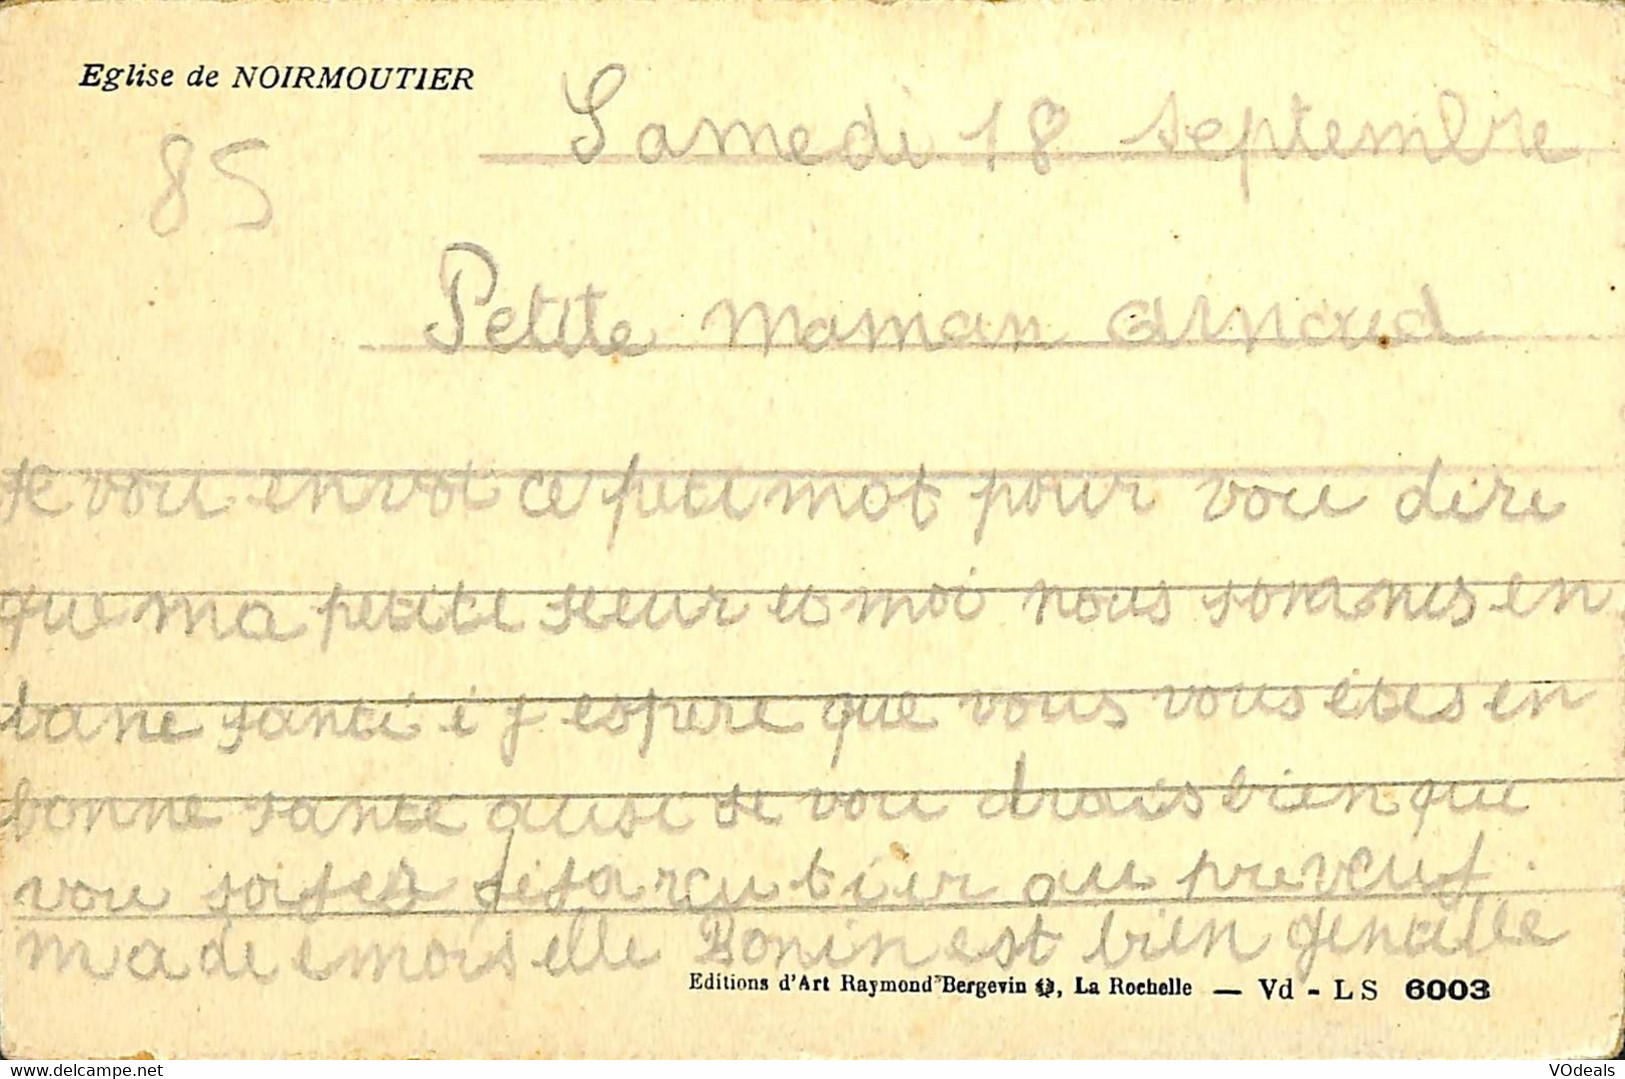 Eglise de NOIRMOUTIER
85
Samedi 18 septembre
Petite maman arnaud
Je vou envoi ce peti mot pour vou dire
que ma petite seur et moi nous sommes en
bane santé é j espere que vous vous étes en
bonne santé ausi je vou drais bien que
vou soifes au
mademoiselle Bonin est bien gentille
Editions d'Art Raymond Bergevin, La Rochelle — Vd - LS 6003
delcampe.net
VOdeals